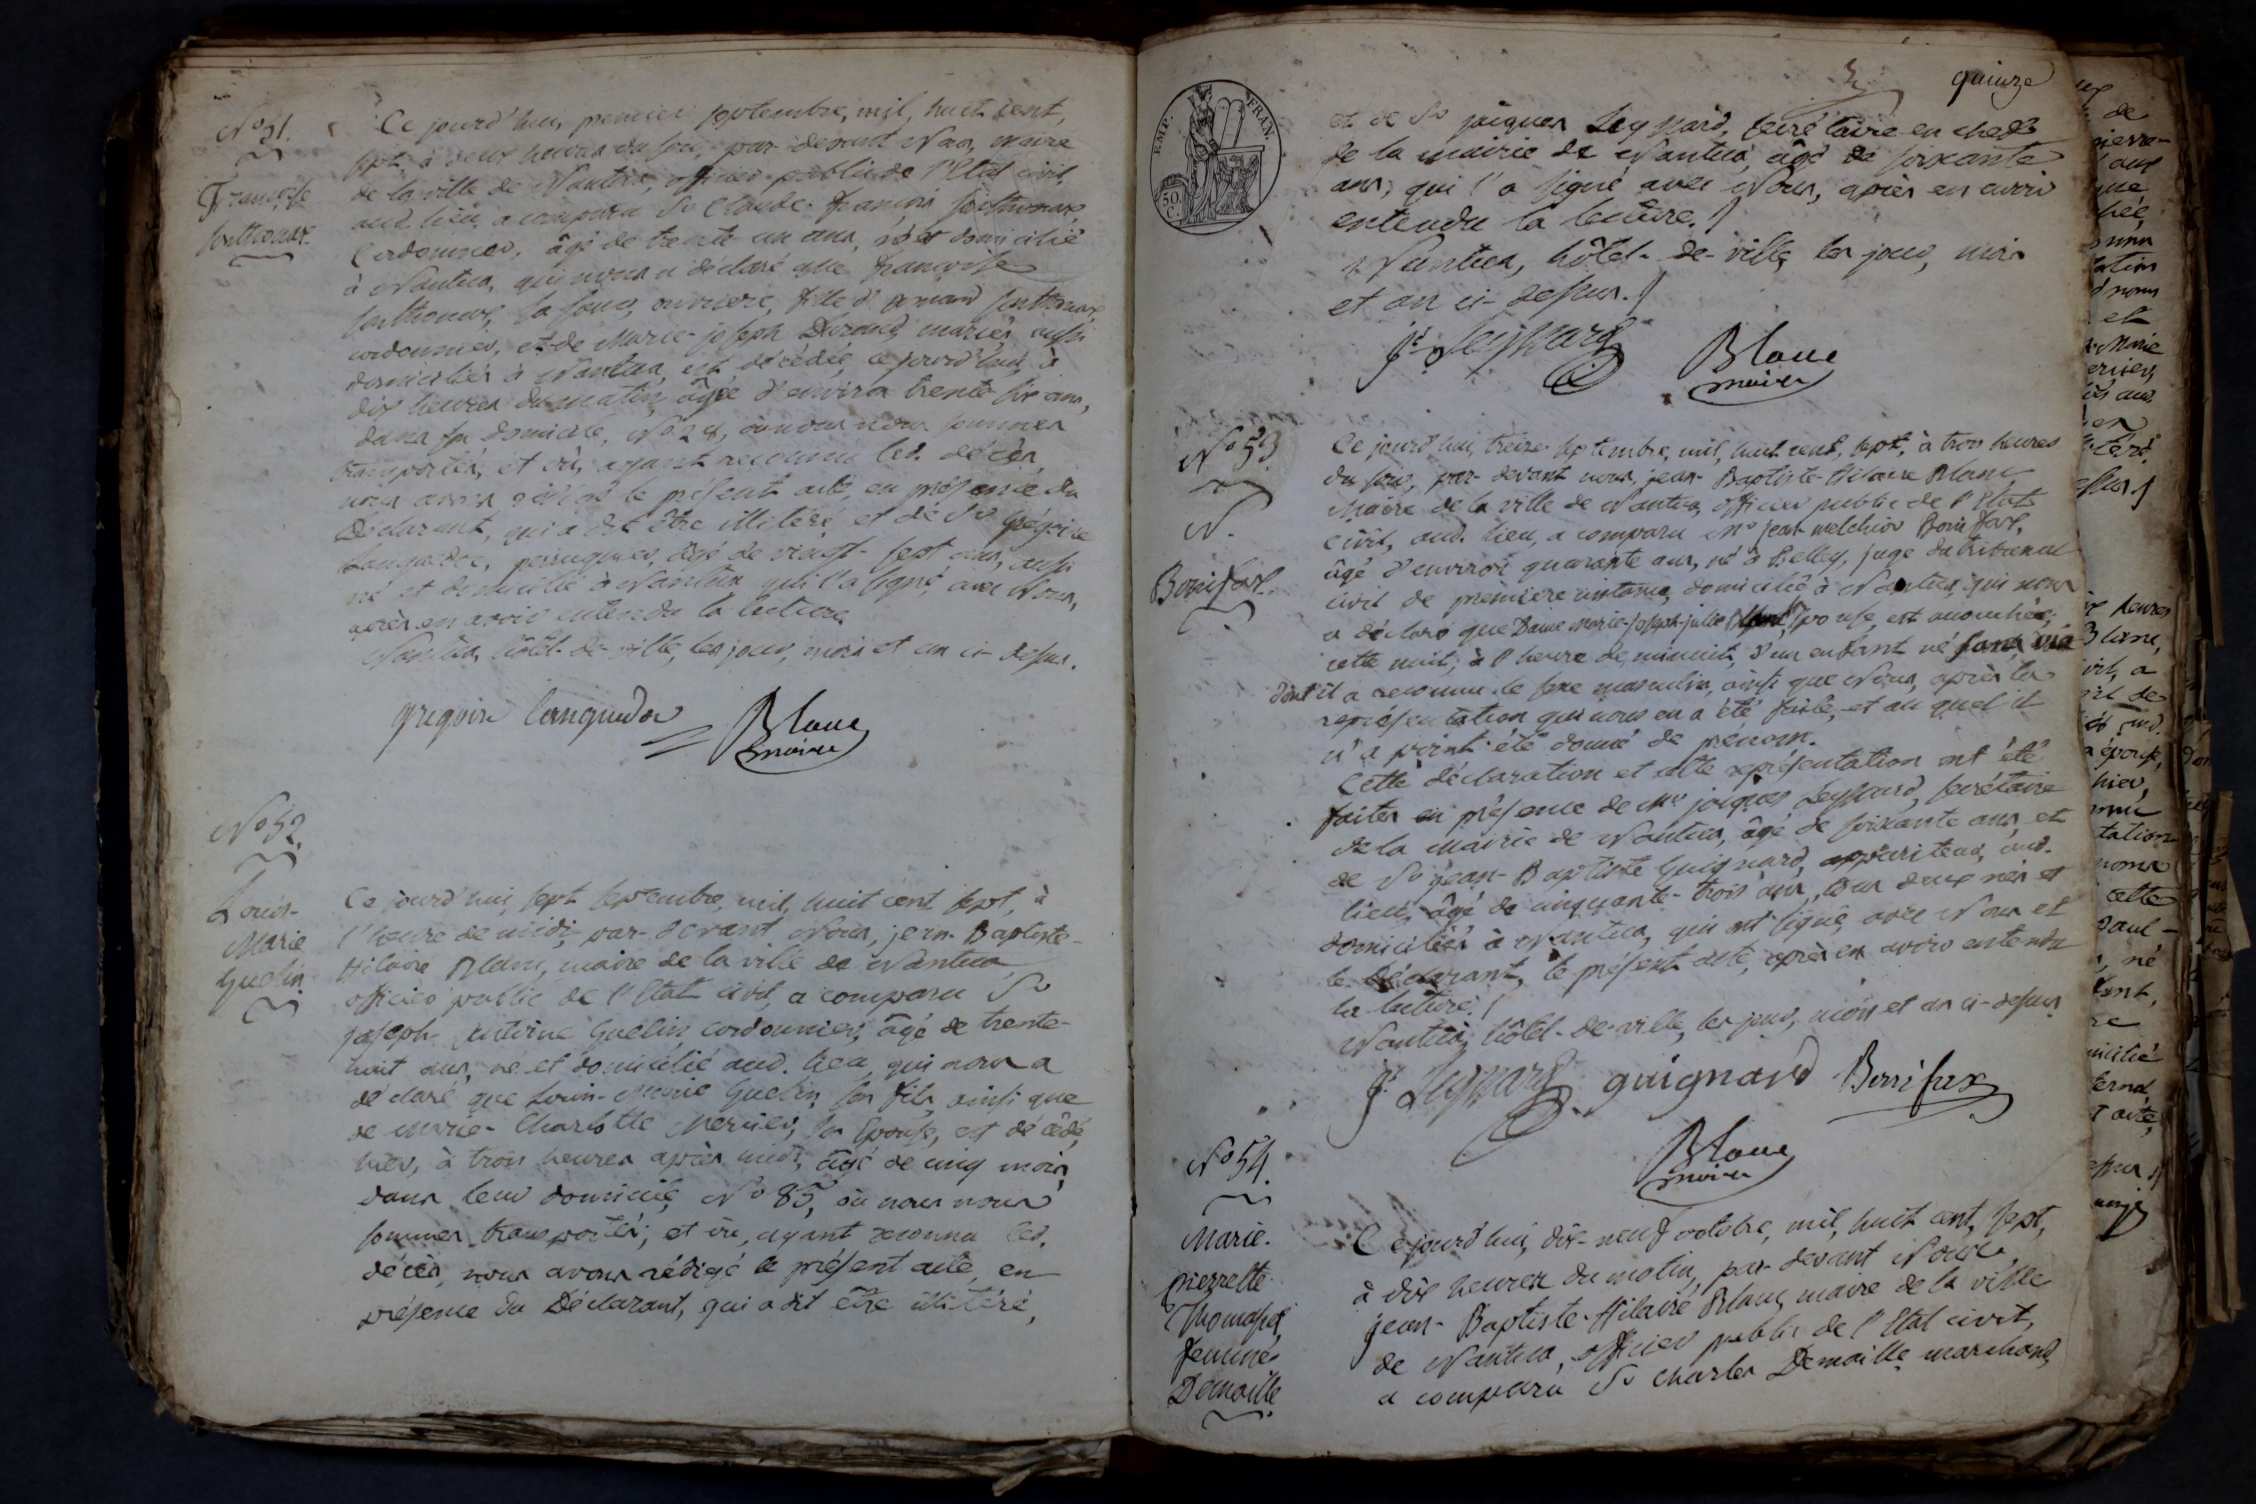 N.° 51.
Françoise
Sonthonax
Ce jourd'hui, premier septembre, mil, huit cent,
sept, à deux heures du soir, par-devant Nous, maire
de la ville de Nantua, officier public de l'Etat civil,
aud. lieu, a comparu Sr Claude-françois Sonthonax,
Cordonnier, âgé de trente un ans, né et domicilié
à Nantua, qui nous a déclaré que françoise
Sonthonax, sa sœur, ouvriere, fille d' Sonthonax
cordonnier, et de Marie-joseph mariés, aussi
domiciliés à Nantua, est décédée, ce jourd'hui, à
dix heures du matin, âgée d'environ trente six ans,
dans son domicile, N.° 28, où nous nous sommes
transportés, et où, ayant reconnu led. décès,
nous avons rédigé le présent acte, en présence du
Déclarant, qui a dit être illitéré, et de Sr grégoire
Languedoc, perruquier, âgé de vingt-sept ans, aussi
né et domicilié à Nantua qui l'a signé, avec Nous,
après en avoir entendu la lecture.
Nantua, hôtel-de-ville, les jour, mois et an ci-dessus.
gregoire languedoc
Blanc
maire
N.° 52.
Louis-
Marie
Guelin
Ce jourd'hui, sept septembre, mil, huit cent sept, à
l'heure de midi, par-devant Nous, jean-Baptiste-
Hilaire Blanc, maire de la ville de Nantua,
officier public de l'Etat civil, a comparu Sr
joseph Antoine Guelin, cordonnier, âgé de trente-
huit ans, né et domicilié aud. lieu, qui nous a
déclaré que Louis-Marie Guelin, son fils, ainsi que
de Marie-Charlotte Mercier, son Epouse, est décédé,
hier, à trois heures après midi, âgé de cinq mois,
dans leur domicile, N.° 85, où nous nous
sommes transportés; et où, ayant reconnu led.
décès, nous avons rédigé le présent acte, en
présence du Déclarant, qui a dit être illitéré,
quinze
EMP. FRAN.
50. C.
et de Sr jacques Leyssard, secrétaire en chef
de la mairie de Nantua, âgé de soixante
ans, qui l'a signé avec Nous, après en avoir
entendu la lecture.
Nantua, hôtel-de-ville, les jour, mois
et an ci-dessus.
J. Leyssard
Blanc
maire
N.° 53.
N.
Bonifax.
Ce jourd'hui, treize septembre, mil, huit cent, sept, à trois heures
du soir, par-devant nous, jean-Baptiste-Hilaire Blanc,
Maire de la ville de Nantua, officier public de l'Etat
civil, aud. lieu, a comparu Mr jean-melchior Bonifax,
âgé d'environ quarante ans, né à Belley, juge du tribunal
civil de première instance, domicilié à Nantua, qui nous
a déclaré que Dame Marie-joseph-julie Epouse, est accouchée,
cette nuit, à l'heure de minuit, d'un enfant né sans vie
dont il a reconnu le sexe masculin, ainsi que Nous, après la
représentation qui nous en a été faite, et au quel il
n'a point été donné de prenom.
Cette déclaration et cette représentation ont été
faites en présence de Mrs jacques Leyssard, secrétaire
de la mairie de Nantua, âgé de soixante ans, et
de Sr jean-Baptiste Guignard, appariteur, aud.
lieu, âgé de cinquante-trois ans, tous deux nés et
domiciliés à Nantua, qui ont signé, avec Nous et
le Déclarant, le présent acte, après en avoir entendu
la lecture.
Nantua, hôtel-de-ville, les jour, mois et an ci-dessus
J. Leyssard guignard Bonifax
Blanc
maire
N.° 54.
Marie-
pierrette
Thomasset,
femme
Démaille
Ce jourd'hui, dix-neuf octobre, mil, huit cent, sept,
à dix heures du matin, par-devant Nous
jean-Baptiste-Hilaire Blanc, maire de la ville
de Nantua, officier public de l'Etat civil,
a comparu Sr charles Demaille, marchand,